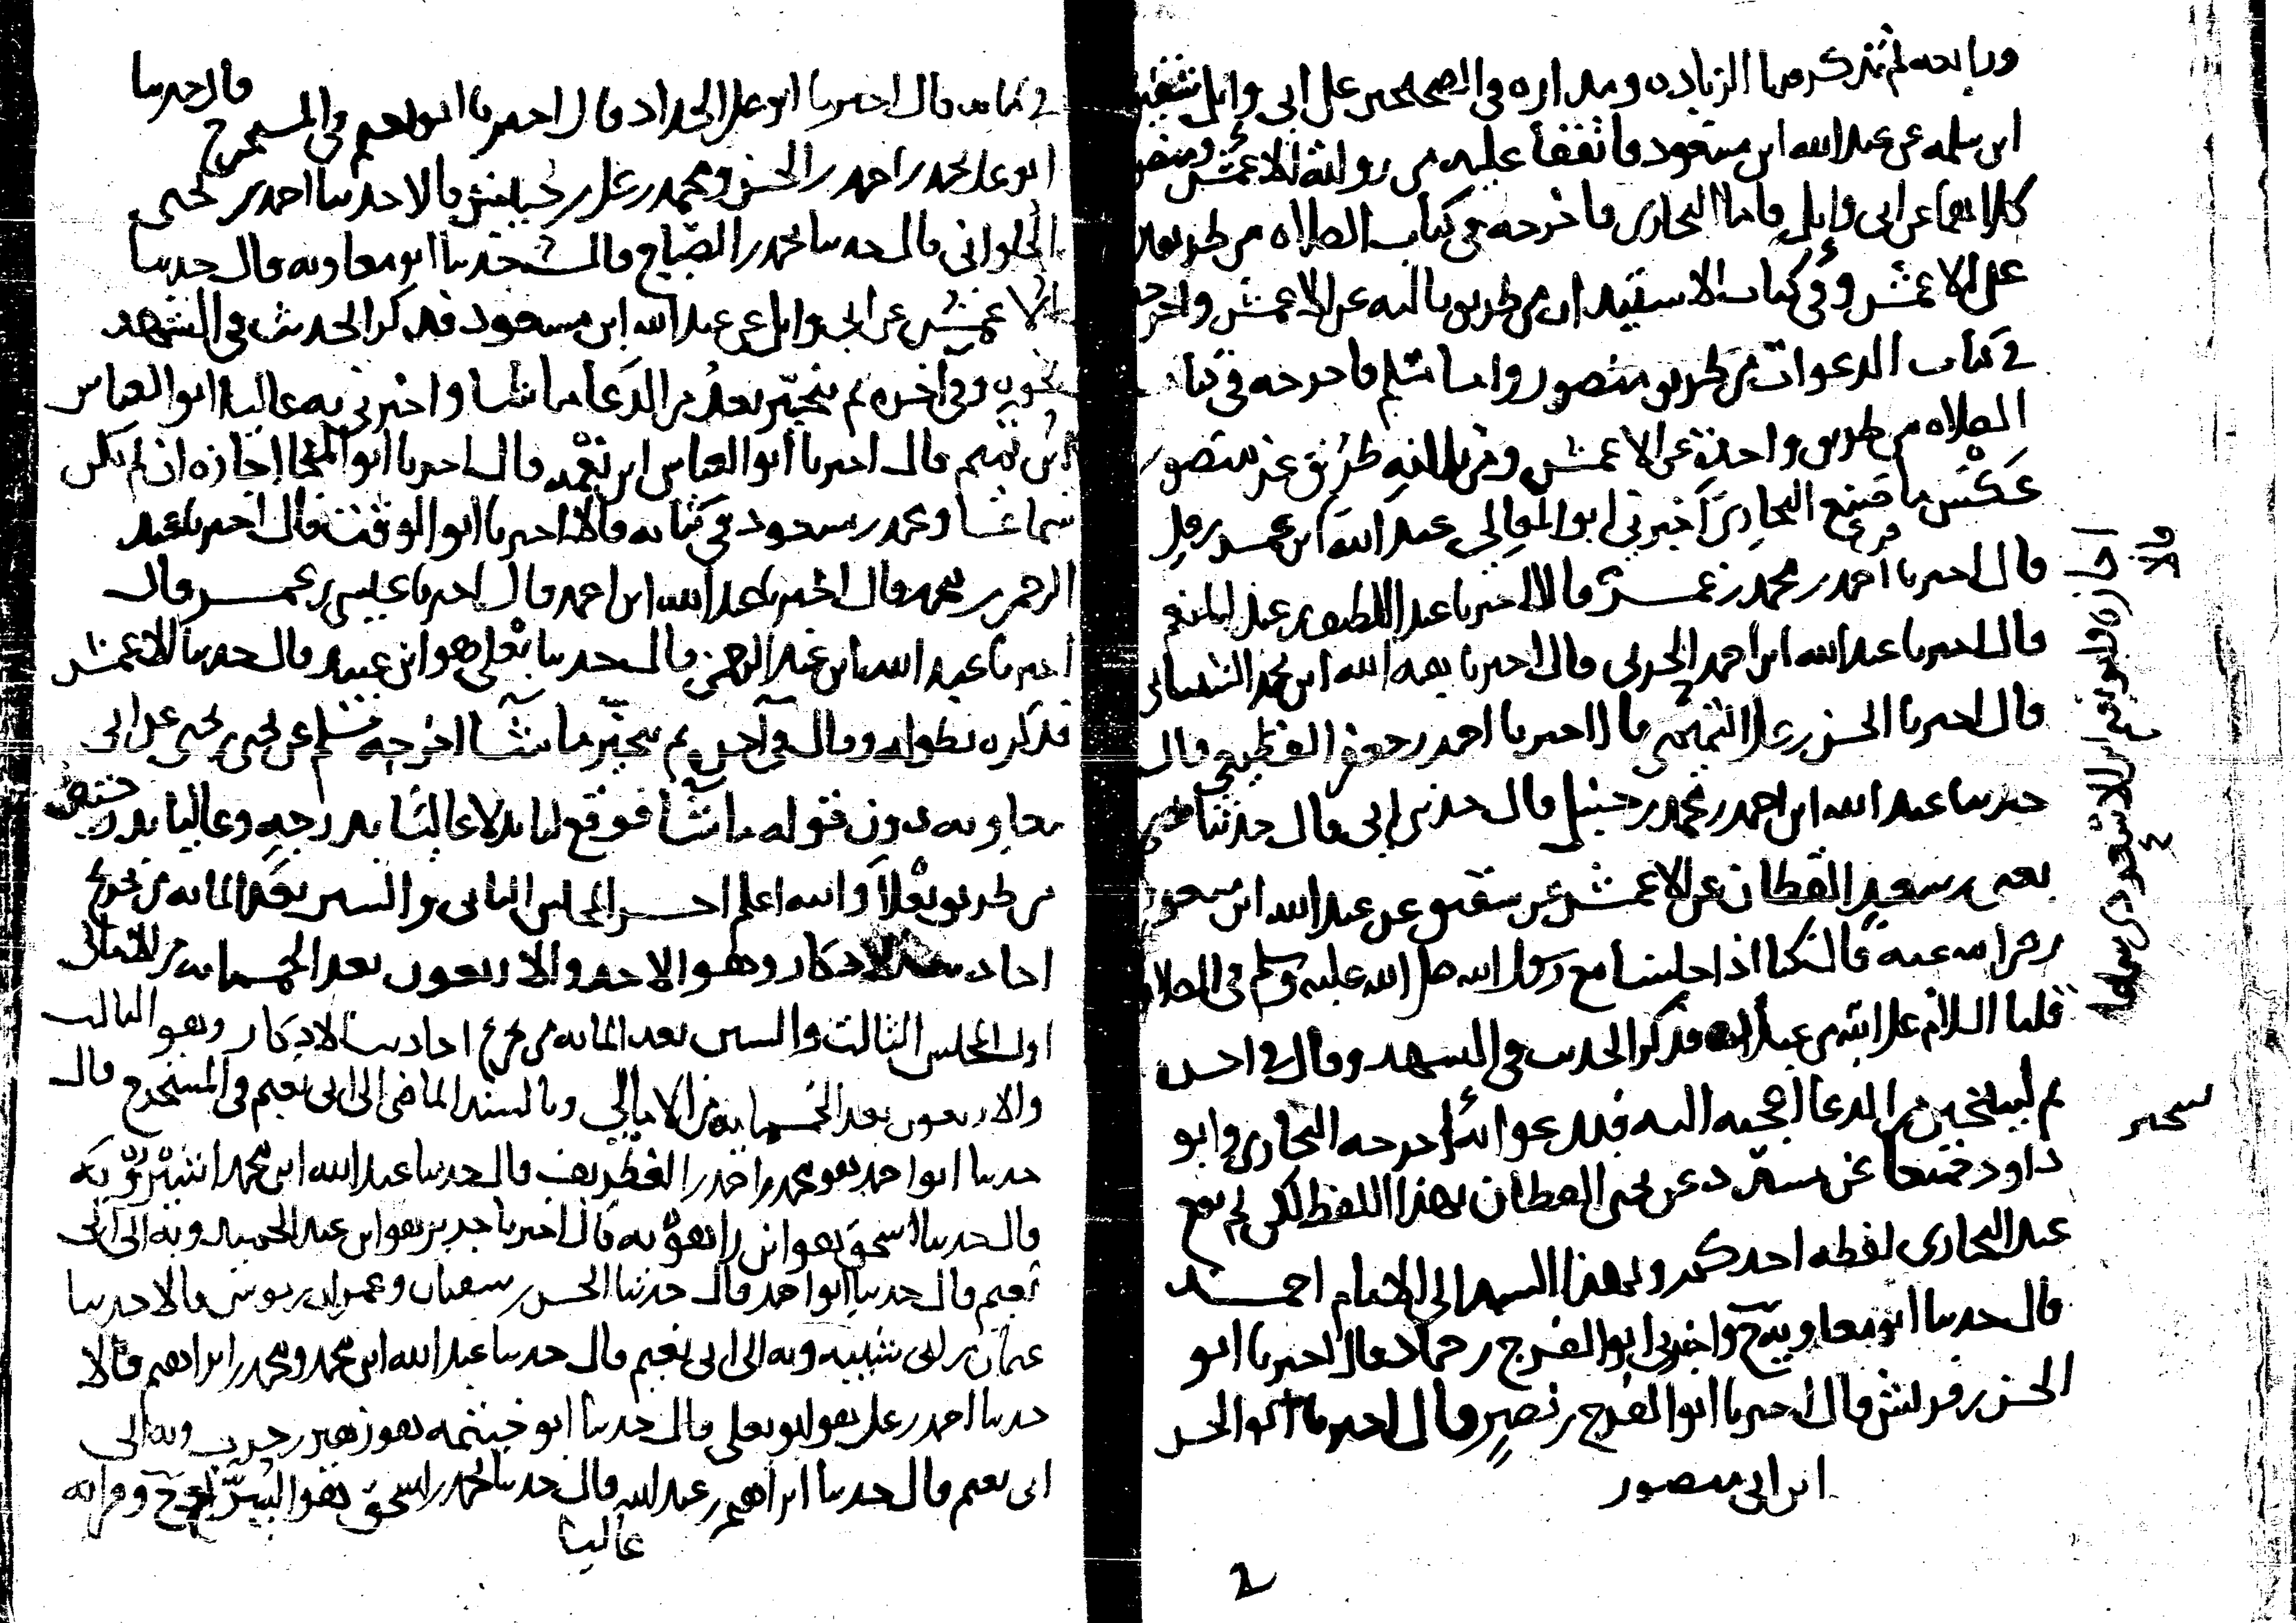 ورابعه لم تذكر فيها الزيادة ومداره في الصحيحين على ابي وايل شقيق
ابن سلمه عن عبد الله ابن مسعود فاتفقا عليه من رواية الاعمش ومنصور
كلاهما عن ابي وايل فاما البخاري فاخرجه في كتاب الصلاه من طريقين
على الاعمش وفي كتاب الاستيذان من طريق ثالثه عن الاعمش واخرجه
في كتاب الدعوات من طريق منصور واما مسلم فاخرجه في كتاب
الصلاه من طريق واحدة عن الاعمش ومن ثلاثة طرق عن منصور
عكس ما صنع البخاري اخبرني ابو المعالي عبد الله ابن عمر بن علي
قال اخبرنا احمد بن محمد بن عمر قالا اخبرنا عبد اللطيف بن عبد المنعم
قال اخبرنا عبد الله ابن احمد الحربي قال اخبرنا هبه الله ابن محمد الشيباني
قال اخبرنا الحسن بن علي التميمي قال اخبرنا احمد بن جعفر القطيعي قال
حدثنا عبد الله ابن احمد بن محمد بن حنبل قال حدثني ابي قال حدثنا
يحيى بن سعيد القطان عن الاعمش عن شقيق عن عبد الله ابن مسعود
رضي الله عنه قال كنا اذا جلسنا مع رسول الله صلى الله عليه وسلم في الصلاة
قلنا السلام على الله من عباده فذكر الحديث في التشهد وقال في اخره
ثم ليتخير من الدعا اعجبه اليه فيدعوا به اخرجه البخاري وابو
داود جميعا عن مسدد عن يحيى القطان بهذا اللفظ لكن لم يقع
عند البخاري لفظه احدكم وبهذا السند الى الامام احمد
قال حدثنا ابو معاوية ح واخبرني ابو الفرج بن حماد قال اخبرنا ابو
الحسن بن قريش قال اخبرنا ابو الفرج بن نصر قال اخبرنا ابو الحسن
ابن ابي منصور
اجازة
قالا
في كتابه قال اخبرنا ابو علي الحداد قال اخبرنا ابو نعيم في المستخرج قال حدثنا
ابو علي محمد بن احمد بن الحسن ومحمد بن علي بن حبيش قالا حدثنا احمد بن يحيى
الحلواني قال حدثنا محمد بن الصباح قال حدثنا ابو معاويه قال حدثنا
الاعمش عن ابي وايل عن عبد الله ابن مسعود فذكر الحديث في التشهد
نحوه وفي اخره ثم يتخير بعد من الدعا ما شا واخبرني به عاليا ابو العباس
ابن تميم قال اخبرنا ابو العباس ابن نعمه قال اخبرنا ابو المنجا اجازه ان لم يكن
سماعا ومحمد بن مسعود في كتابه قالا اخبرنا ابو الوقت قال اخبرنا عبد
الرحمن بن محمد قال اخبرنا عبد الله ابن احمد قال اخبرنا عيسى بن عمر قال
اخبرنا عبد الله ابن عبد الرحمن قال حدثنا يعلى هو ابن عبيد قال حدثنا الاعمش
فذكره بطوله وقال في آخره ثم يتخير ما شآ اخرجه مسلم عن يحيى بن يحيى عن ابي
معاويه دون قوله ما شآ فوقع لنا بدلا عاليا بدرجه وعاليا بدرجتين
من طريق يعلا والله اعلم اخر المجلس الثاني والستين بعد المائه من تخريج
احاديث الاذكار وهو الاحد والاربعون بعد الخمسمائه من الامالي
اول المجلس الثالث والستين بعد المائه من تخريج احاديث الاذكار وهو الثالث
والاربعون بعد الخمسمائه من الامالي وبالسند الماضي الى ابي نعيم في المستخرج قال
حدثنا ابو احمد هو محمد بن احمد الغطريف قال حدثنا عبد الله ابن محمد بن شيرويه
قال حدثنا اسحق هو ابن راهويه قال اخبرنا جرير هو ابن عبد الحميد وبه الى ابي
نعيم قال حدثنا ابو احمد قال حدثنا الحسن بن سفيان وعمران بن موسى قالا حدثنا
عثمان بن ابي شيبه وبه الى ابي نعيم قال حدثنا عبد الله ابن محمد ومحمد بن ابراهيم قالا
حدثنا احمد بن علي هو ابو يعلى قال حدثنا ابو خيثمه هو زهير بن حرب وبه الى
ابي نعيم قال حدثنا ابراهيم بن عبد الله قال حدثنا محمد بن اسحق هو السراج ح وقراته
عاليا
2